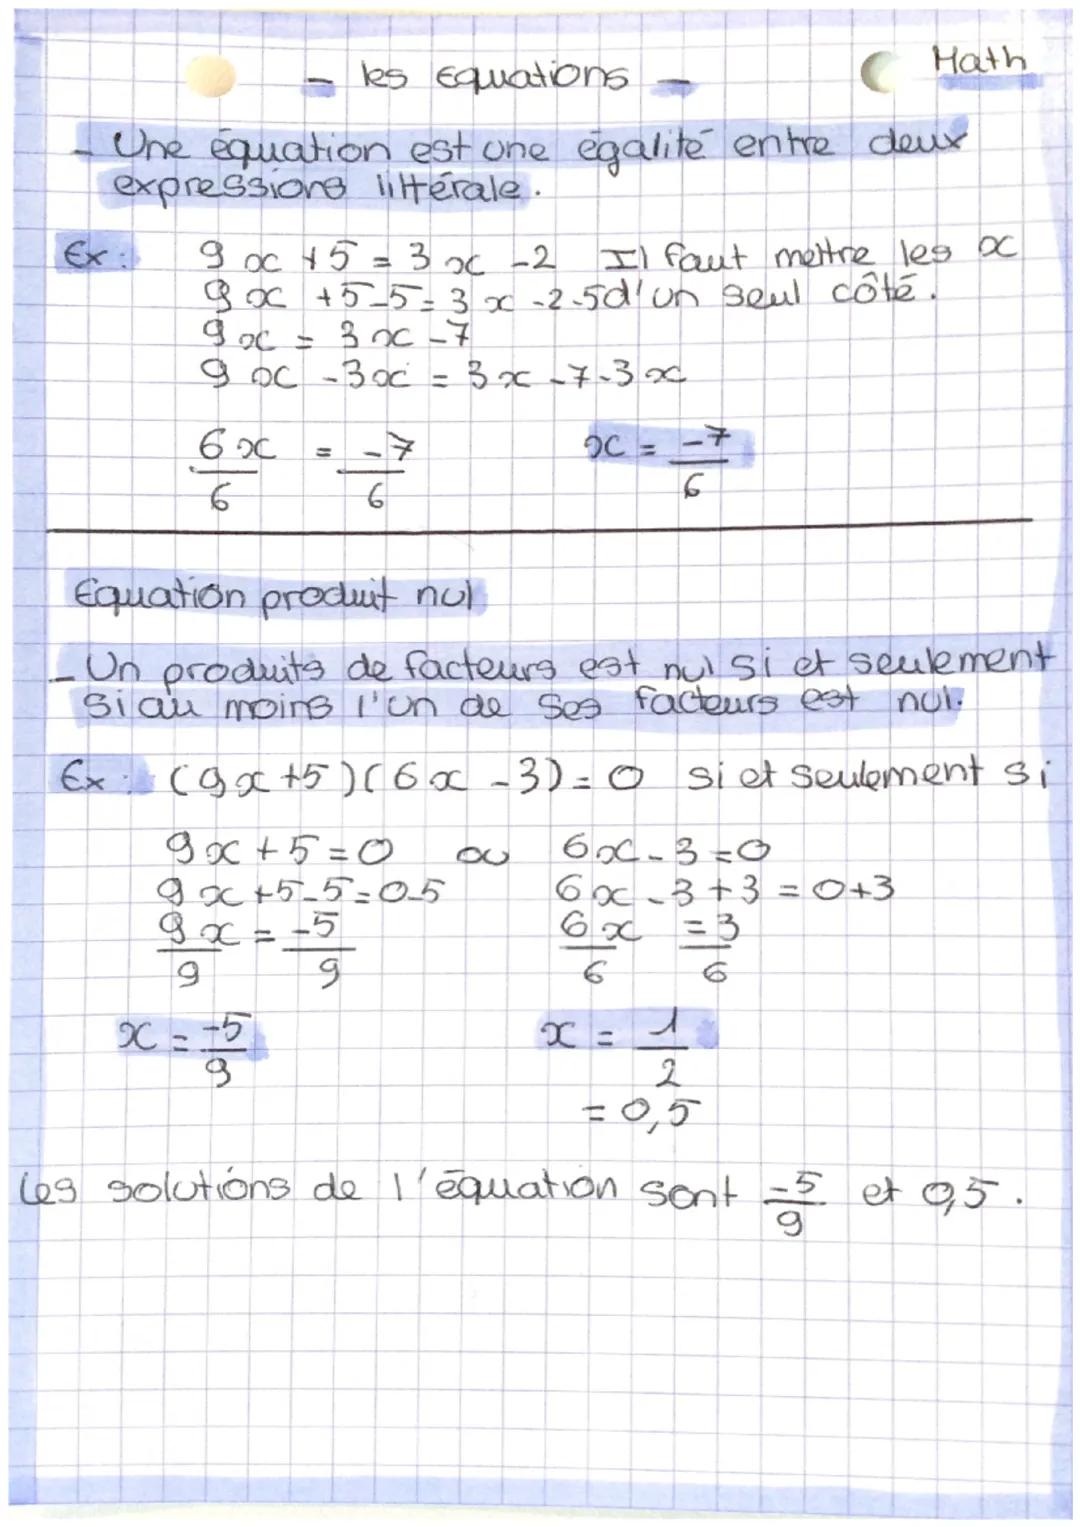 - les Equations -
Math
- Une équation est une égalité entre deux
expressions littérale.
Ex: 9x + 5 = 3x - 2 Il faut mettre les x
9x + 5 - 5 = 3x - 2 - 5 d'un seul côté.
9x = 3x - 7
9x - 3x = 3x - 7 - 3x
6x/6 = -7/6 x = -7/6
Equation produit nul
- Un produits de facteurs est nul si et seulement
si au moins l'un de ses facteurs est nul.
Ex: (9x + 5)(6x - 3) = 0 si et seulement si
9x + 5 = 0 ou 6x - 3 = 0
9x + 5 - 5 = 0 - 5 6x - 3 + 3 = 0 + 3
9x/9 = -5/9 6x/6 = 3/6
x = -5/9 x = 1/2
= 0,5
Les solutions de l'équation sont -5/9 et 0,5.